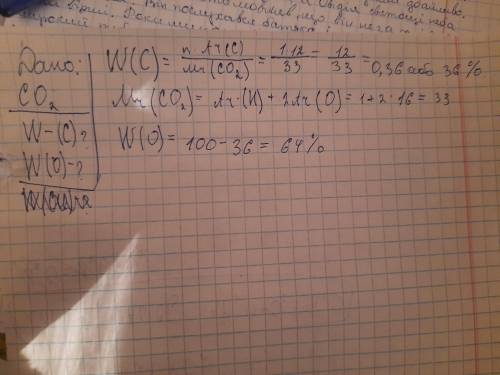 Дано:
CO₂
W-(C)?
W(O)-?
W(C) = n·Ar(C)/Mr(CO₂) = 1·12/33 = 12/33 = 0,36 або 36%
Mr(CO₂) = Ar·(H)+2Ar(O) = 1+2·16 = 33
W(O) = 100-36 = 64%